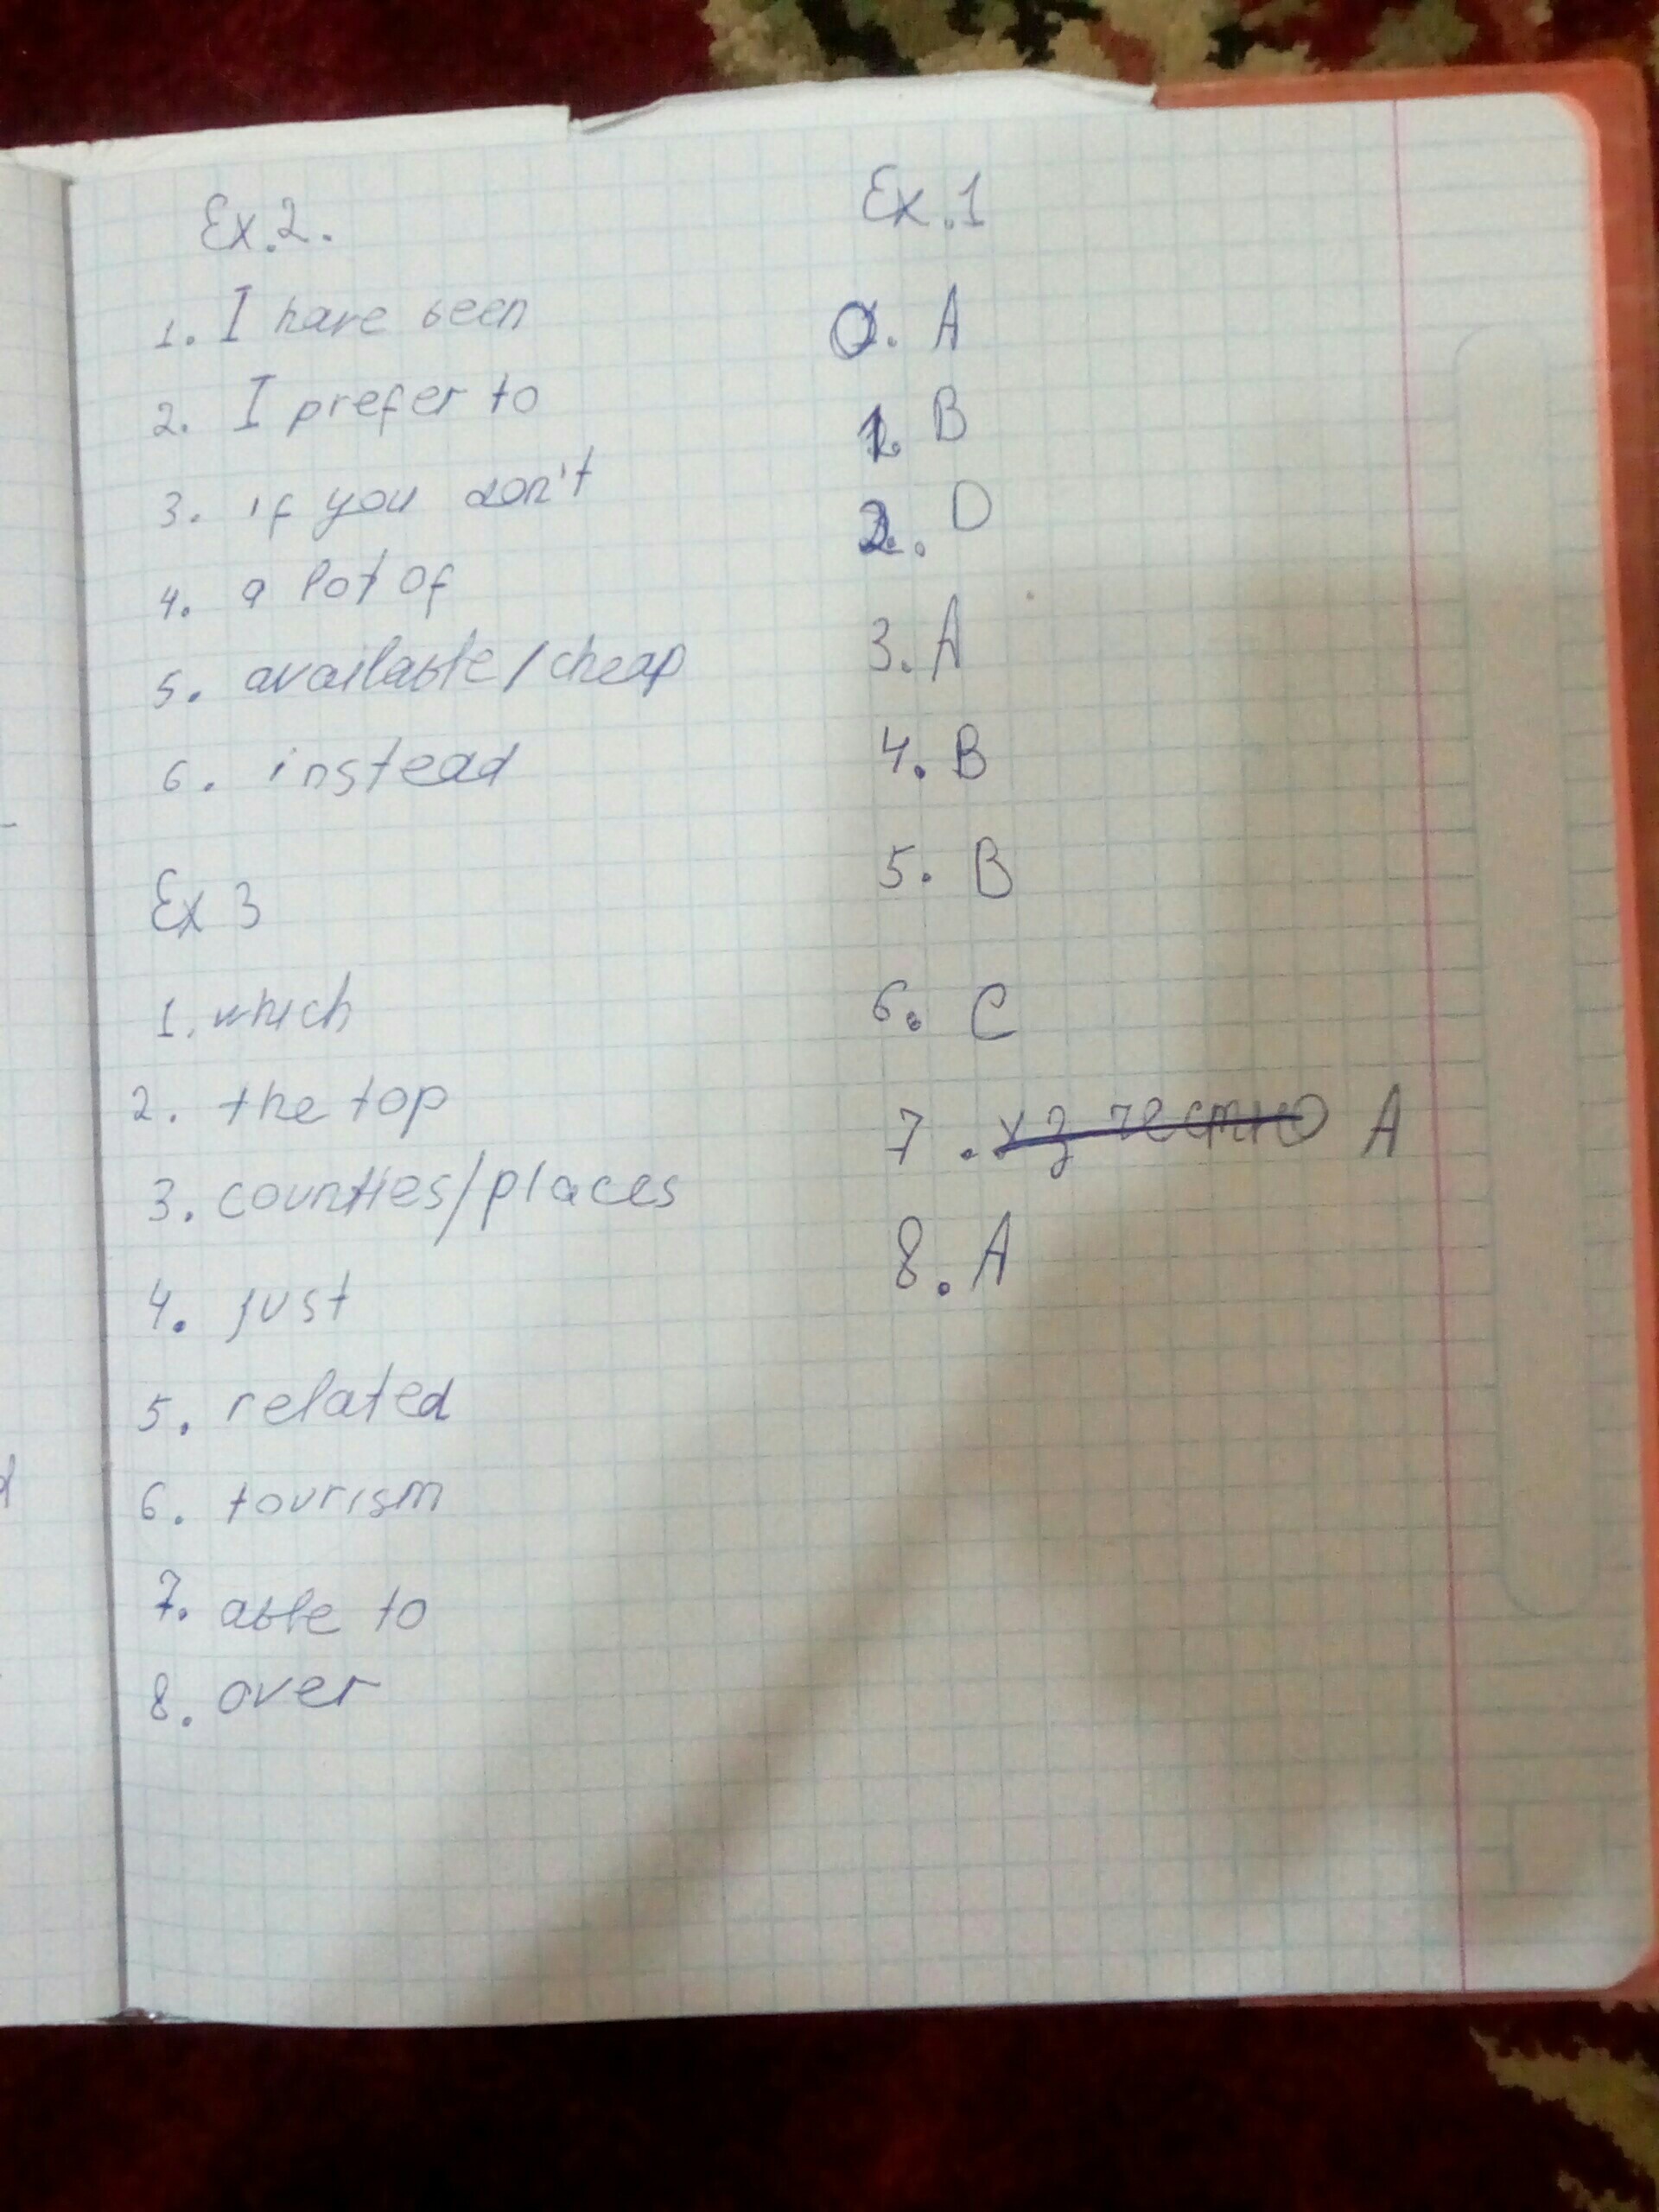 Ex.2.
1. I have been
2. I prefer to
3. if you don't
4. a lot of
5. available/cheap
6. instead
Ex 3
1. which
2. the top
3. counties/places
4. just
5. related
6. tourism
7. able to
8. over
Ex.1
0. A
1. B
2. D
3. A
4. B
5. B
6. C
7. хз честно A
8. A